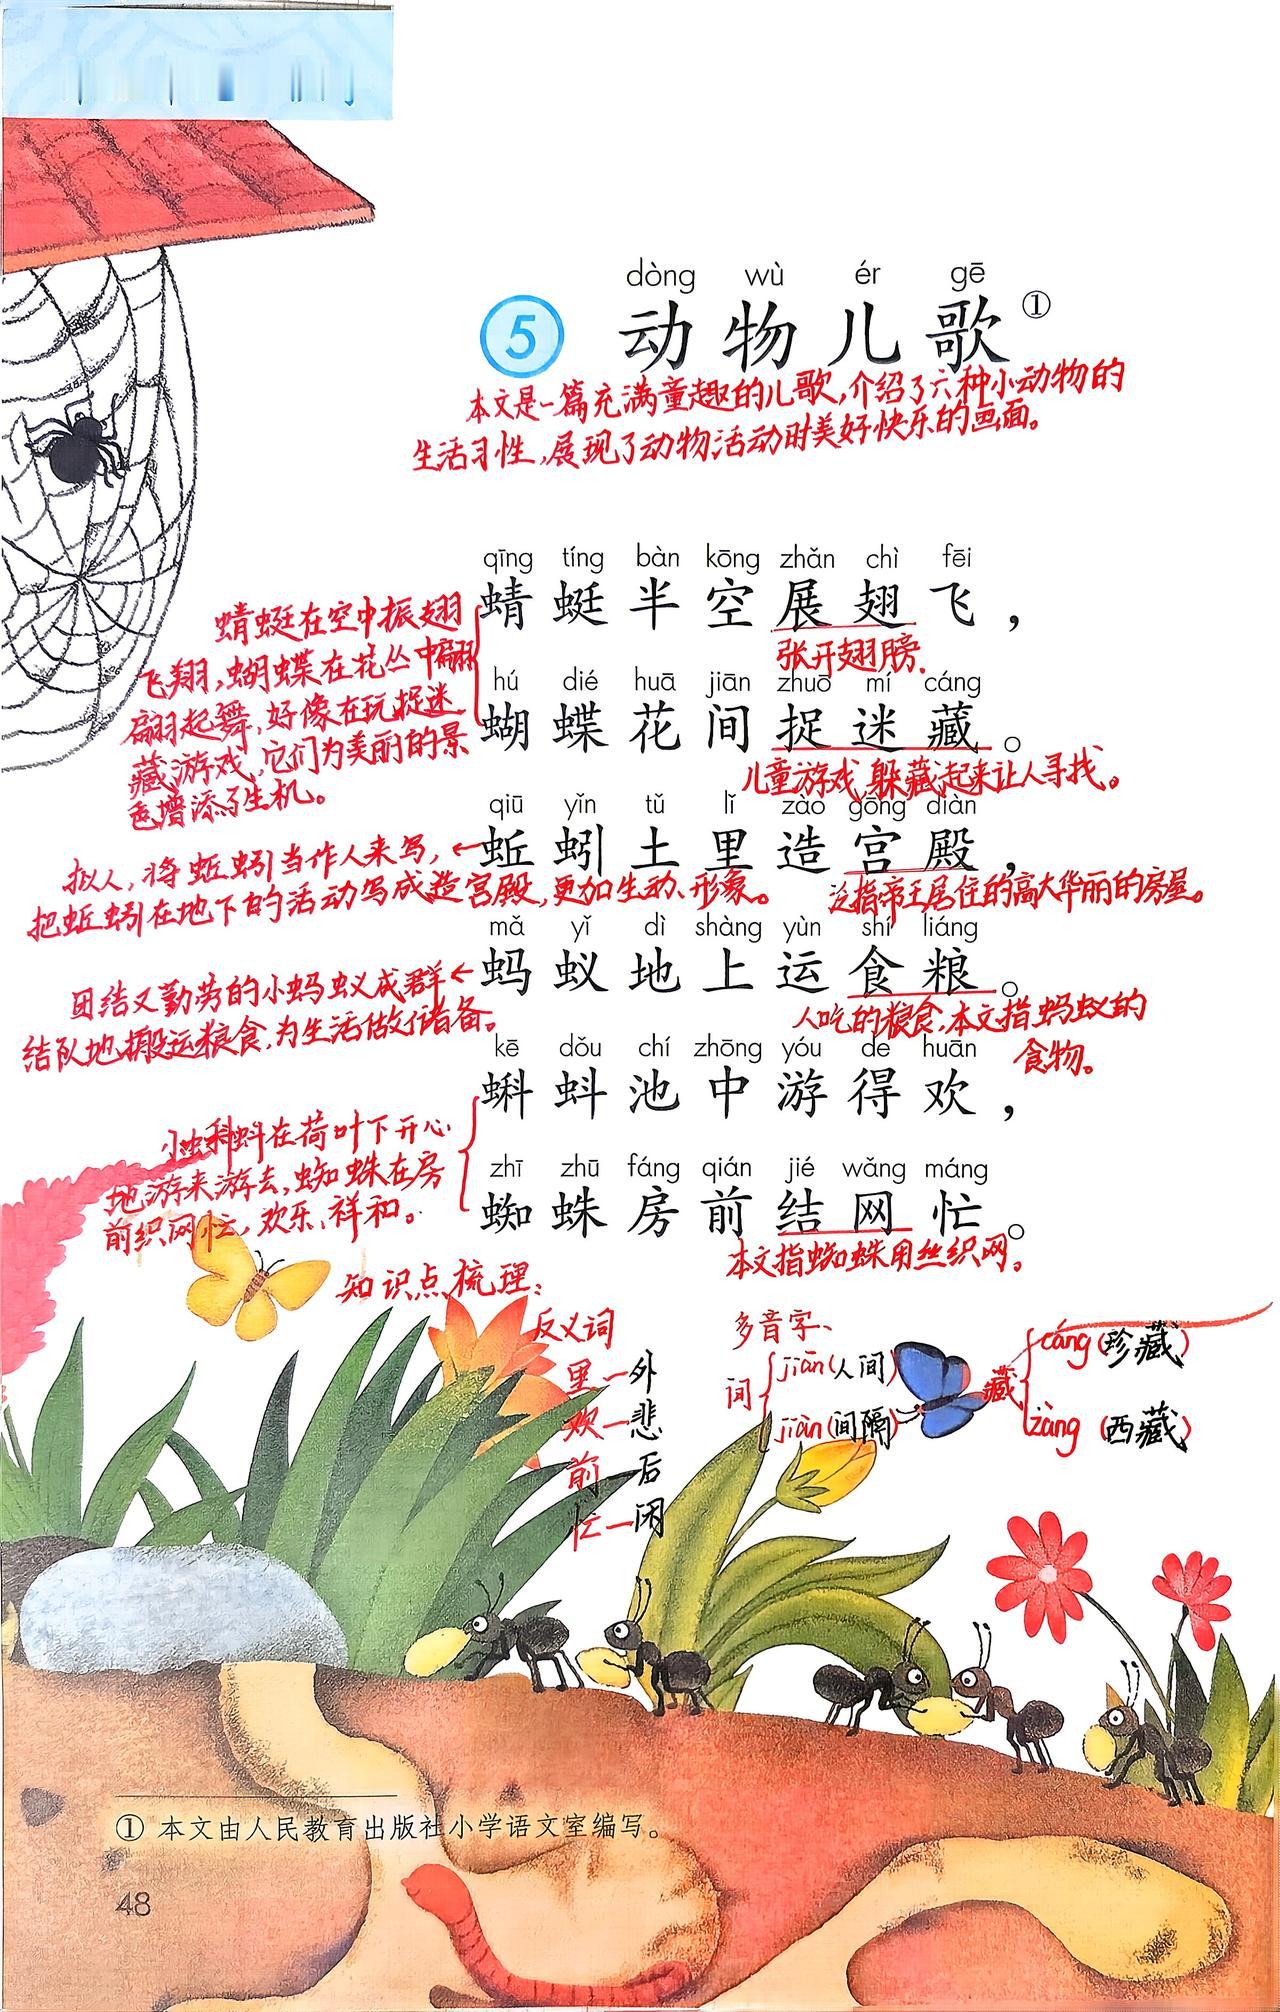 dòng wù ér gē
5 动物儿歌①
本文是一篇充满童趣的儿歌,介绍了六种小动物的
生活习性,展现了动物活动时美好快乐的画面。
qīng tíng bàn kōng zhǎn chì fēi
蜻蜓半空展翅飞，
张开翅膀.
hú dié huā jiān zhuō mí cáng
蝴蝶花间捉迷藏。
儿童游戏,躲藏起来让人寻找。
蜻蜓在空中振翅
飞翔,蝴蝶在花丛中翩
翩起舞,好像在玩捉迷
藏游戏,它们为美丽的景
色增添了生机。
qiū yǐn tǔ lǐ zào gōng diàn
蚯蚓土里造宫殿，
泛指帝王居住的高大华丽的房屋。
拟人,将蚯蚓当作人来写,
把蚯蚓在地下的活动写成造宫殿,更加生动、形象。
mǎ yǐ dì shàng yùn shí liáng
蚂蚁地上运食粮。
人吃的粮食,本文指蚂蚁的
食物。
团结又勤劳的小蚂蚁成群
结队地搬运粮食,为生活做储备。
kē dǒu chí zhōng yóu de huān
蝌蚪池中游得欢，
zhī zhū fáng qián jié wǎng máng
蜘蛛房前结网忙。
本文指蜘蛛用丝织网。
小蝌蚪在荷叶下开心
地游来游去,蜘蛛在房
前织网忙,欢乐、祥和。
知识点梳理:
反义词
里—外
欢—悲
前—后
忙—闲
多音字、
间 jiān(人间)
jiàn(间隔)
藏 cáng(珍藏)
zàng(西藏)
① 本文由人民教育出版社小学语文室编写。
48